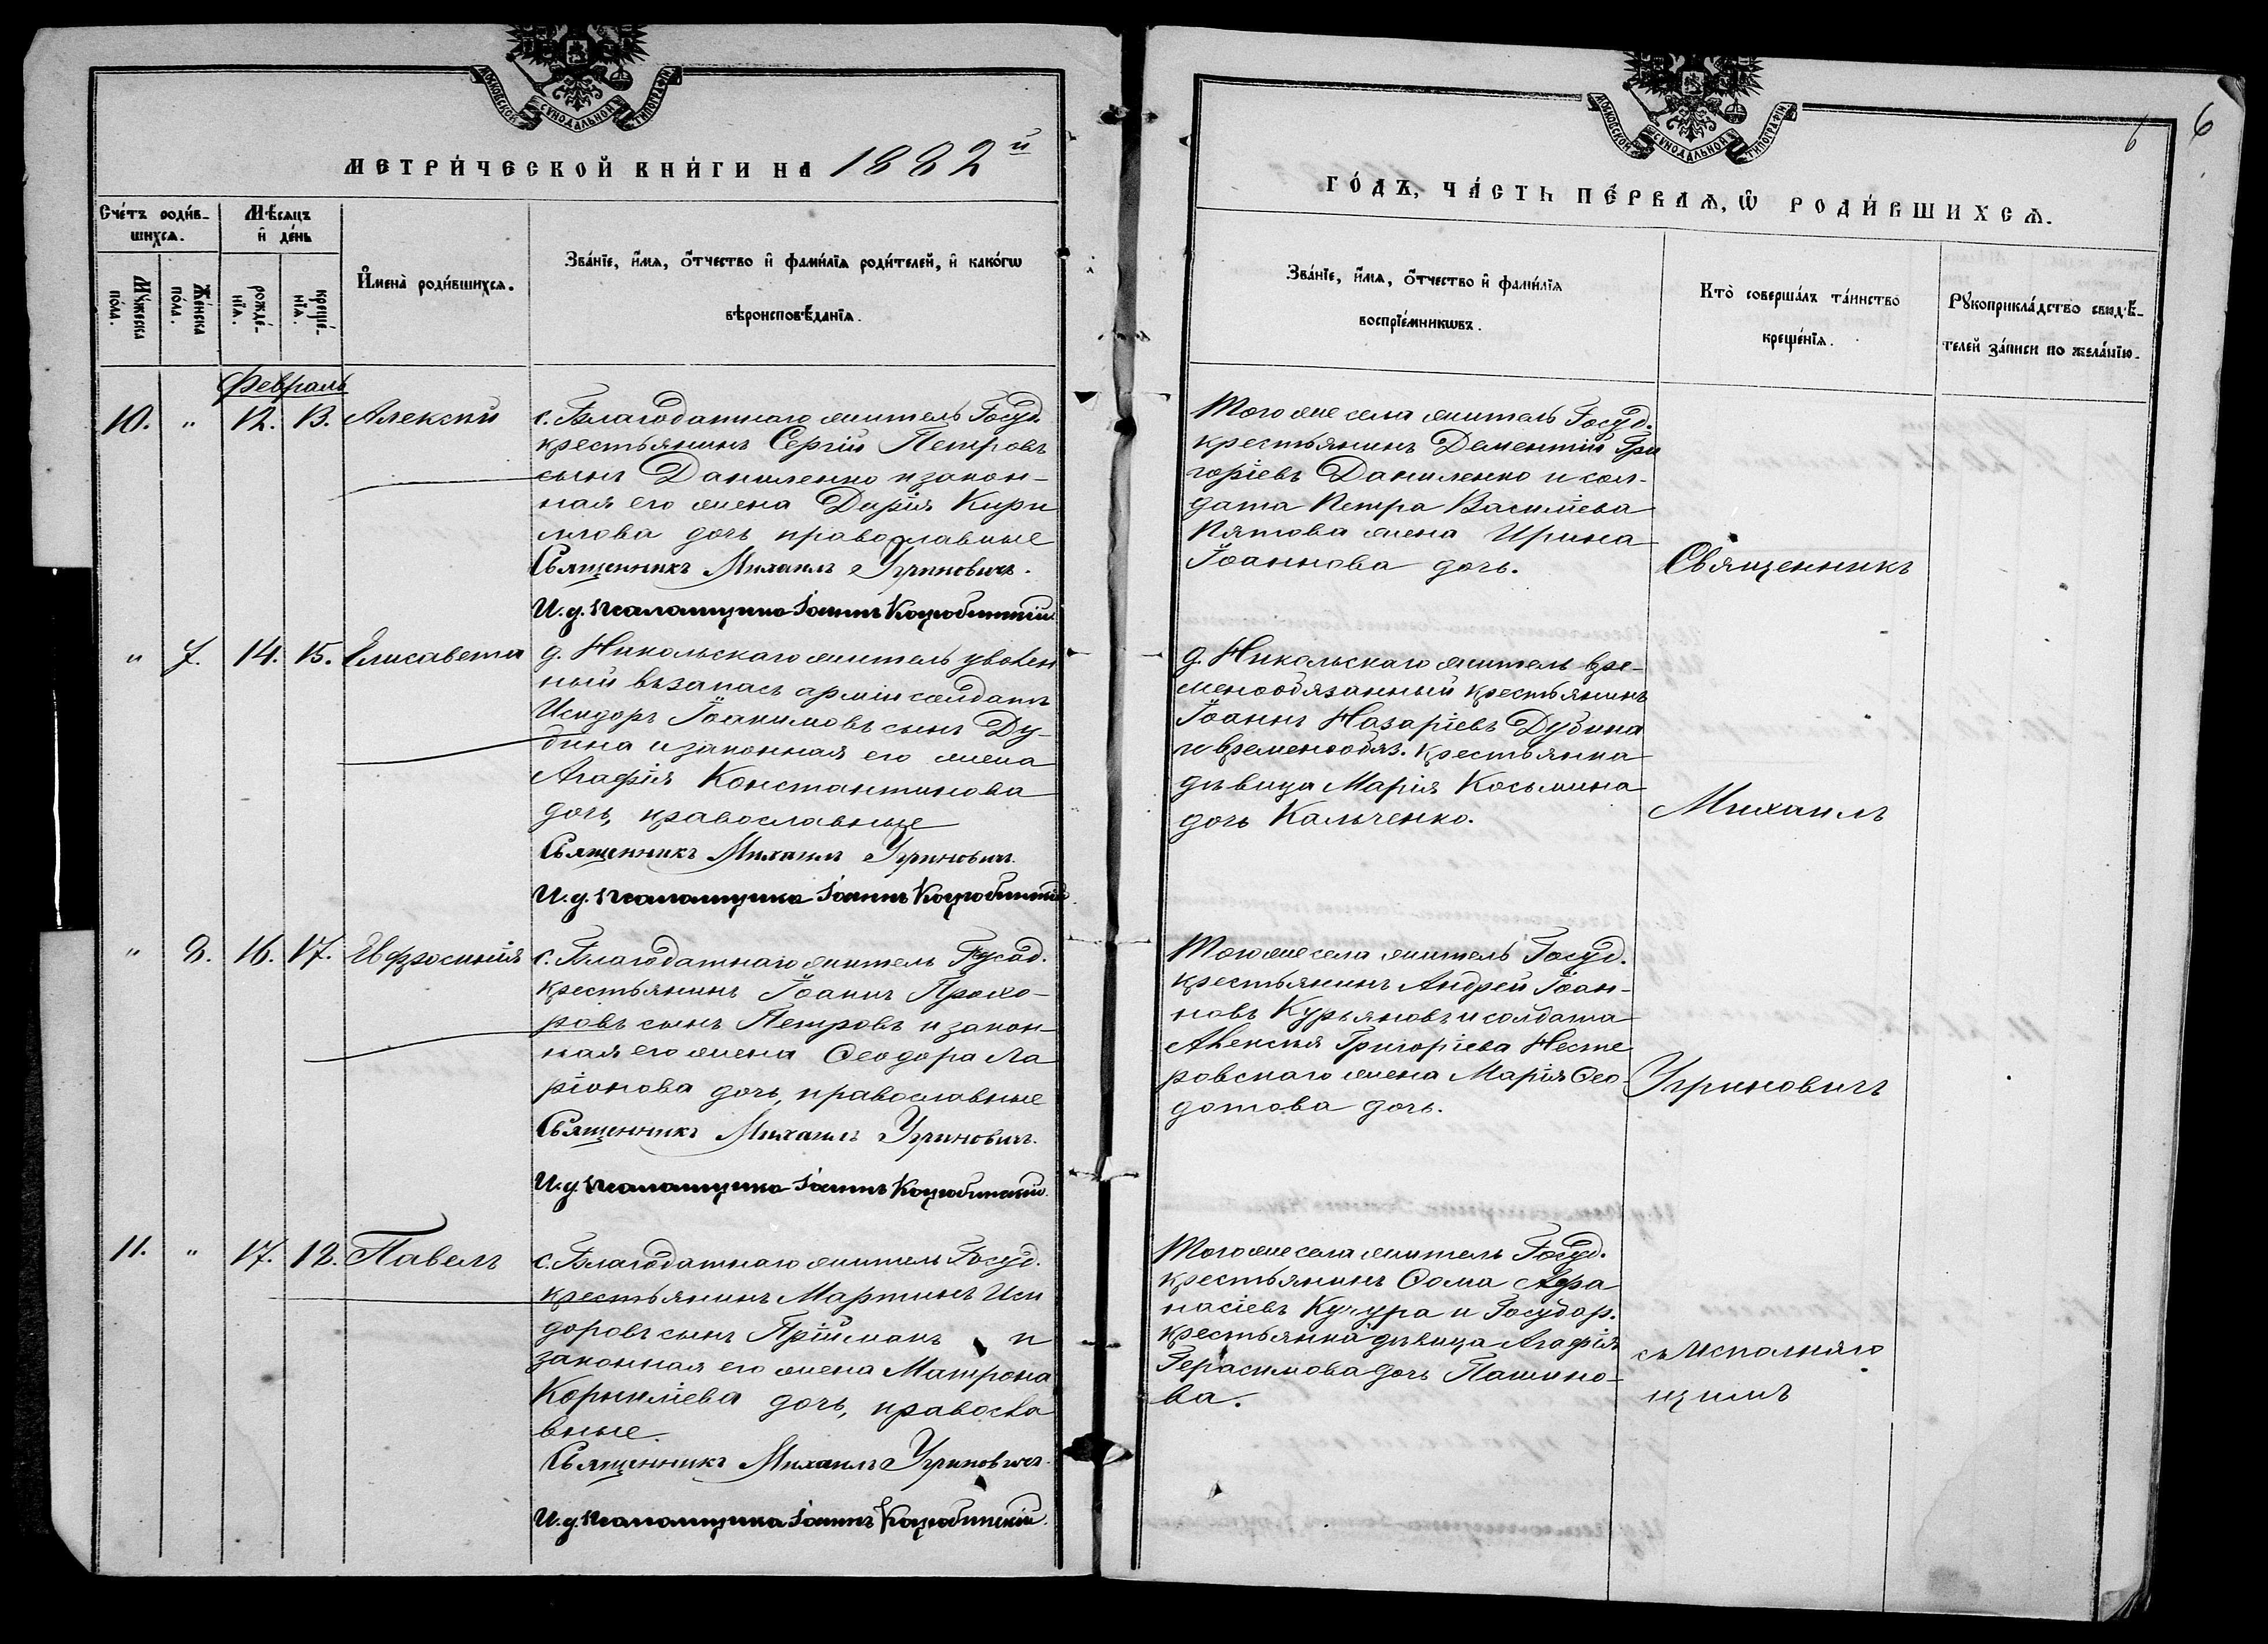 МОСКОВСКОЙ СУНОДАЛЬНОЙ ТИПОГРАФІИ
МЕТРИ́ЧЕСКОЙ КНИ́ГИ НА 1882й
Сче́тъ роди́в-
шихсѧ.
Мѣ́сѧцъ
и де́нь
Мꙋ́жеска
по́ла.
Же́нска
по́ла.
рожде́-
нїѧ.
креще́-
нїѧ.
И҆мена̀ роди́вшихсѧ.
Зва́нїе, и҆́мѧ, ѻ҆́тчество и҆ фами́лїѧ роди́телей, и҆ како́гѡ
вѣроисповѣ́данїѧ.
Февраль
10. " 12. 13. Алексѣй
с. Благодатнаго житель Госуд.
крестьянинъ Сергій Петровъ
сынъ Даниленко и закон-
ная его жена Дарія Кири
ллова дочь православные
Священникъ Михаилъ Угриновичъ.
И. д. псаломщика Іоаннъ Коцюбинскій
" 7. 14. 15. Елисавета
д. Никольскаго житель уволен
ный въ запасъ арміи солдатъ
Исидоръ Іоакимовъ сынъ Ду-
бина и законная его жена
Агафія Константинова
дочь, православные
Священникъ Михаилъ Угриновичъ.
И. д. псаломщика Іоаннъ Коцюбинскій.
" 8. 16. 17. Евфросинія
с. Благодатнаго житель Гусод.
крестьянинъ Іоаннъ Прохо-
ровъ сынъ Петровъ и закон-
ная его жена Ѳеодора Ла
ріонова дочь, православные
Священникъ Михаилъ Угриновичъ.
И. д. псаломщика Іоаннъ Коцюбинскій.
11. " 17. 18. Павелъ
с. Благодатнаго житель Госуд.
крестьянинъ Мартинъ Иси
доровъ сынъ Прійманъ и
законная его жена Матрона
Корниліева дочь, правосла
вные.
Священникъ Михаилъ Угриновичъ.
И. д. псаломщика Іоаннъ Коцюбинскій.
МОСКОВСКОЙ СУНОДАЛЬНОЙ ТИПОГРАФІИ
6 6
ГО́ДЪ, ЧА́СТЬ ПЕ́РВАѦ, Ѡ҆ РОДИ́ВШИХСѦ.
Зва́нїе, и҆́мѧ, ѻ҆́тчество и҆ фами́лїѧ
воспрїе́мникѡвъ.
Кто̀ соверша́лъ та́инство
креще́нїѧ.
Рꙋкоприкла́дство свидѣ́-
телей за́писи по жела́нїю.
Того же села житель Госуд.
крестьянинъ Дементій Гри
горіевъ Даниленко и сол-
дата Петра Василіева
Пятова жена Ирина
Іоаннова дочь.
Священникъ
д. Никольскаго житель вре-
менообязанный крестьянинъ
Іоаннъ Назаріевъ Дубина
и временнообяз. крестьянка
дѣвица Марія Косьмина
дочь Кальченко.
Михаилъ
Того же села житель Госуд.
крестьянинъ Андрей Іоан-
новъ Курьяновъ и солдата
Алексѣя Григоріева Несте
ровскаго жена Марія Ѳео-
дотова дочь.
Угриновичъ
Того же села житель Госуд.
крестьянинъ Ѳома Афа
насіевъ Кучура и Государ.
крестьянка дѣвица Агафія
Герасимова дочь Пашино-
ва.
съ исполняю
щимъ